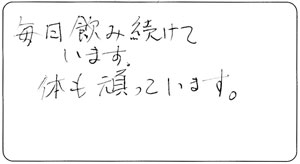 毎日飲み続けて
います。
体も頑っています。